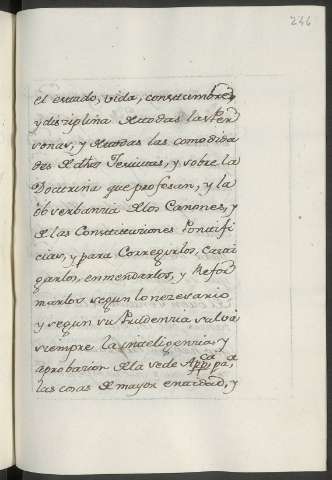 246
el estado, vida, constumbres,
y disziplina de todas las Per
sonas, y de todas las comodida
des de dhos Jesuitas, y sobre la
Doctrina que profesan, y la
observanzia de los Canones, y
de las Constituciones Pontifi
cias, y para Corregirlos, Casti
garlos, enmendarlos, y Refor
marlos segun lo nezesario
y segun su Prudenzia salva
siempre la inteligenzia, y
aprobazion de la sede Appca pa,
las cosas de mayor entidad, y